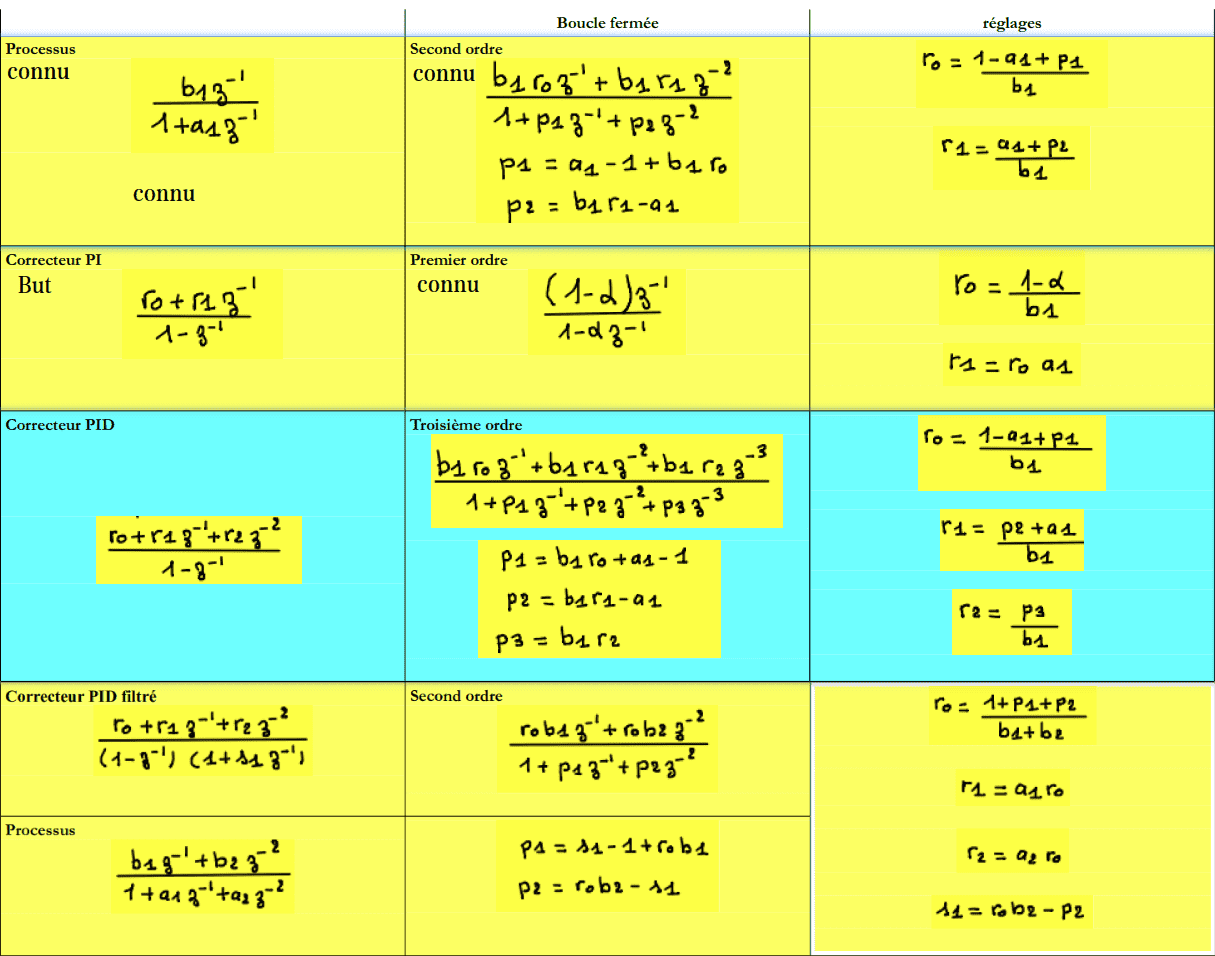 Boucle fermée
réglages
Processus
connu
b1z⁻¹
1+a1z⁻¹
connu
Second ordre
connu
b1 r0 z⁻¹ + b1 r1 z⁻²
1+p1 z⁻¹ + p2 z⁻²
p1 = a1 - 1 + b1 r0
p2 = b1 r1 - a1
r0 = 1-a1+p1
b1
r1 = a1+p2
b1
Correcteur PI
But
r0 + r1 z⁻¹
1 - z⁻¹
Premier ordre
connu
(1-α)z⁻¹
1-αz⁻¹
r0 = 1-α
b1
r1 = r0 a1
Correcteur PID
r0+r1 z⁻¹+r2 z⁻²
1-z⁻¹
Troisième ordre
b1 r0 z⁻¹+b1 r1 z⁻²+b1 r2 z⁻³
1+p1 z⁻¹+p2 z⁻²+p3 z⁻³
p1 = b1 r0 + a1 - 1
p2 = b1 r1 - a1
p3 = b1 r2
r0 = 1-a1+p1
b1
r1 = p2+a1
b1
r2 = p3
b1
Correcteur PID filtré
r0+r1 z⁻¹+r2 z⁻²
(1-z⁻¹) (1+s1 z⁻¹)
Second ordre
r0b1z⁻¹+r0b2z⁻²
1+p1z⁻¹+p2z⁻²
Processus
b1z⁻¹+b2z⁻²
1+a1z⁻¹+a2z⁻²
p1 = s1-1+r0b1
p2 = r0b2-s1
r0 = 1+p1+p2
b1+b2
r1 = a1r0
r2 = a2 r0
s1 = r0b2-p2